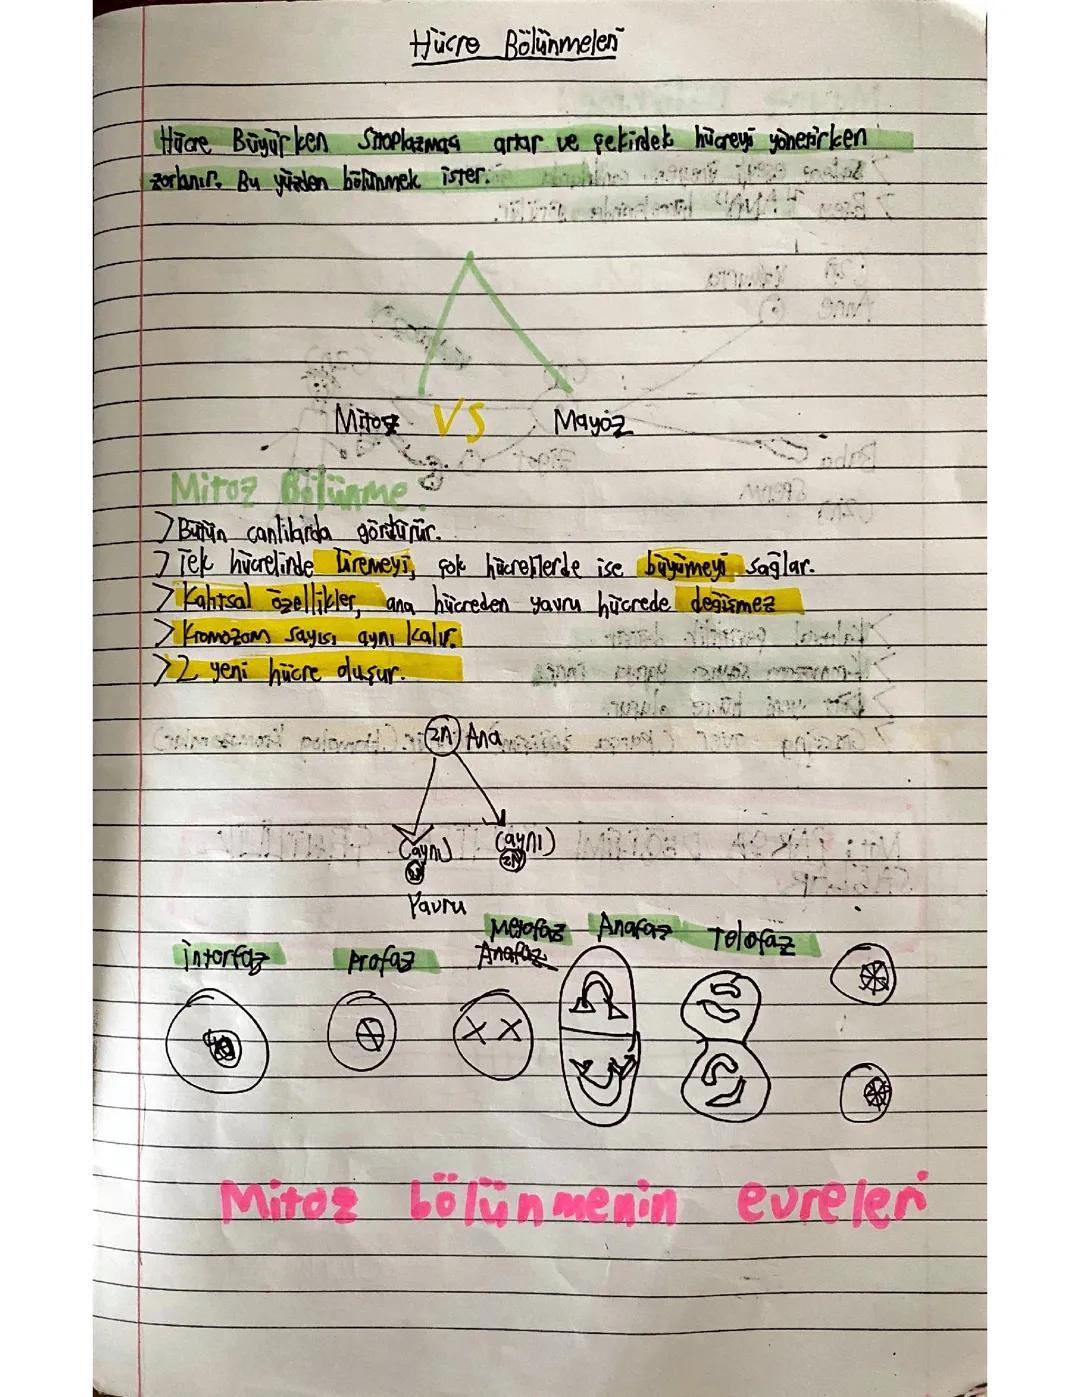 Hücre Bölünmeleri
Hücre Büyürken Sitoplazması artar ve çekirdek hücreyi yönetirken
zorlanır. Bu yüzden bölünmek ister.
Mitoz VS Mayoz
Mitoz Bölünme:
> Bütün canlılarda görülür.
> Tek hücrelinde üremeyi, çok hücrelilerde ise büyümeyi sağlar.
> Kalıtsal özellikler, ana hücreden yavru hücrede değişmez
> Kromozom sayısı aynı kalır.
> 2 yeni hücre oluşur.
2n Ana
(aynı) (aynı)
2n
Yavru
Metafaz Anafaz Telofaz
İnterfaz Profaz Anafaz
Mitoz bölünmenin evreleri